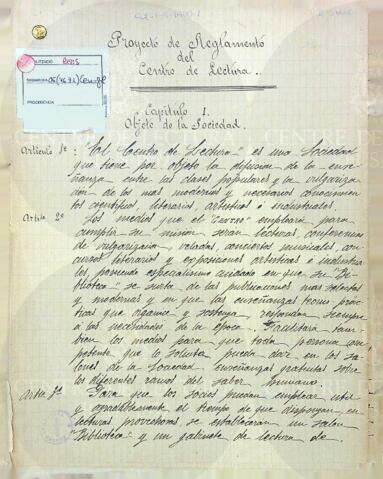 Proyecto de Reglamento
del
Centro de Lectura.
Capitulo I.
Objeto de la Sociedad.
Articulo 1º: "El Centro de Lectura" es una Sociedad
que tiene por objeto la difusion de la ense-
ñanza entre las clases populares y la vulgariza-
ción de los mas modernos y necesarios conocimien-
tos cientificos, literarios, artisticos e industriales.
Artic. 2º Los medios que el "Centro" empleará para
cumplir su mision serán lecturas, conferencias
de vulgarización, veladas, conciertos musicales, con-
cursos literarios y exposiciones artisticas e industria-
les, poniendo especialisimo cuidado en que su "Bi-
blioteca" se surta de las publicaciones mas selectas
y modernas y en que las enseñanzas teorico prác-
ticas que organice y sostenga, respondan siempre
a las necesidades de la época. Facilitará tam-
bien los medios para que toda persona com-
petente que lo solicite pueda dar en los sa-
lones de la Sociedad enseñanzas gratuitas sobre
los diferentes ramos del saber humano.
Artic. 3º Para que los socios puedan emplear util
y agradablemente el tiempo de que dispongan, en
lecturas provechosas, se establecerán un salon
"Biblioteca" y un gabinete de lectura de